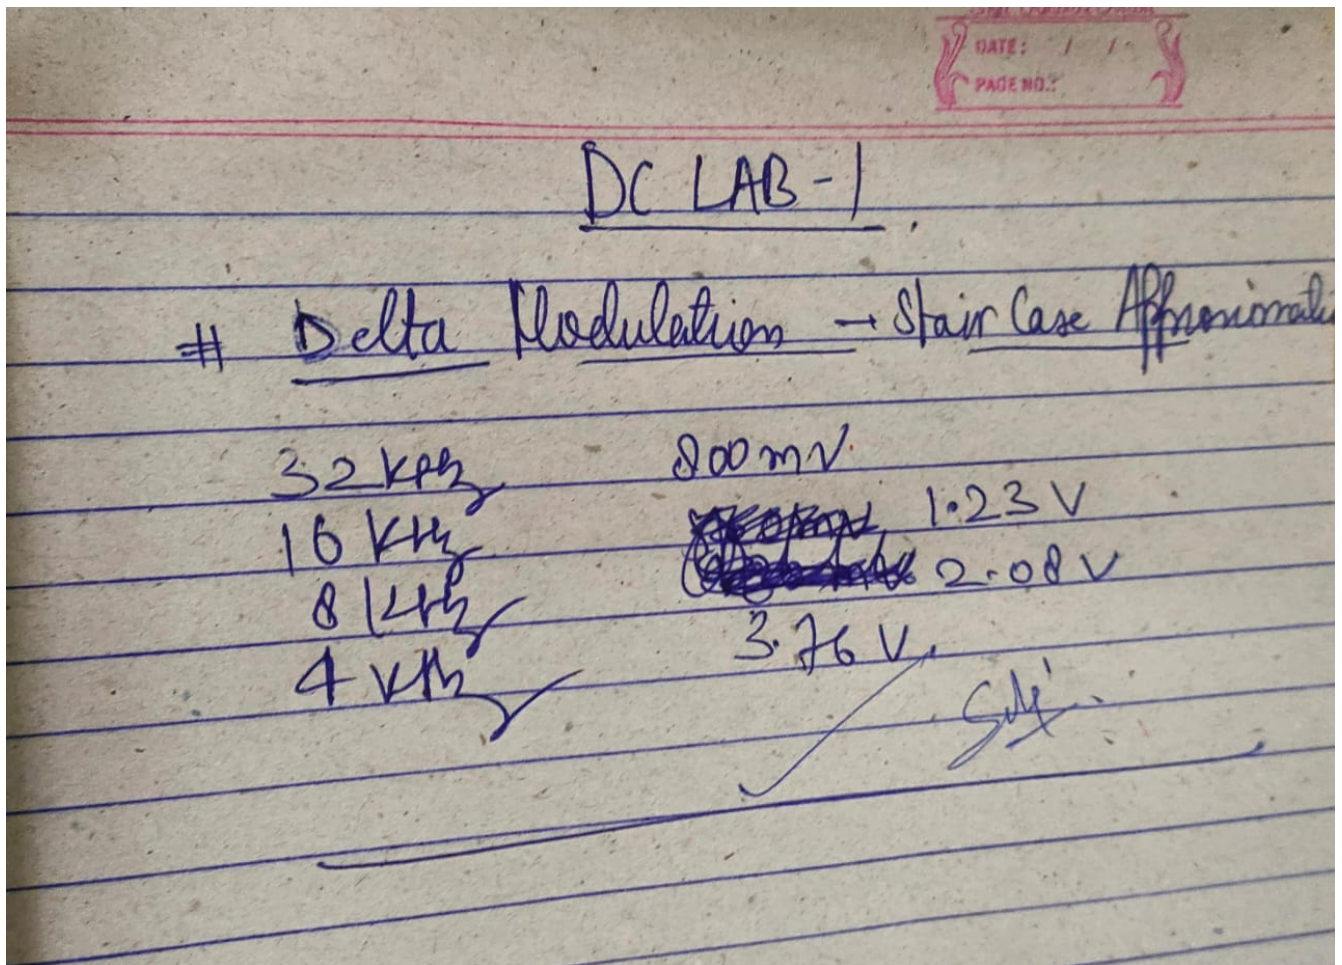 DATE: / /
PAGE NO.:
DC LAB-1
# Delta Modulation → Stair Case Approximati
32 KHz 800mV.
16 KHz 1.23 V
8 KHz 2.08 V
4 KHz 3.76 V